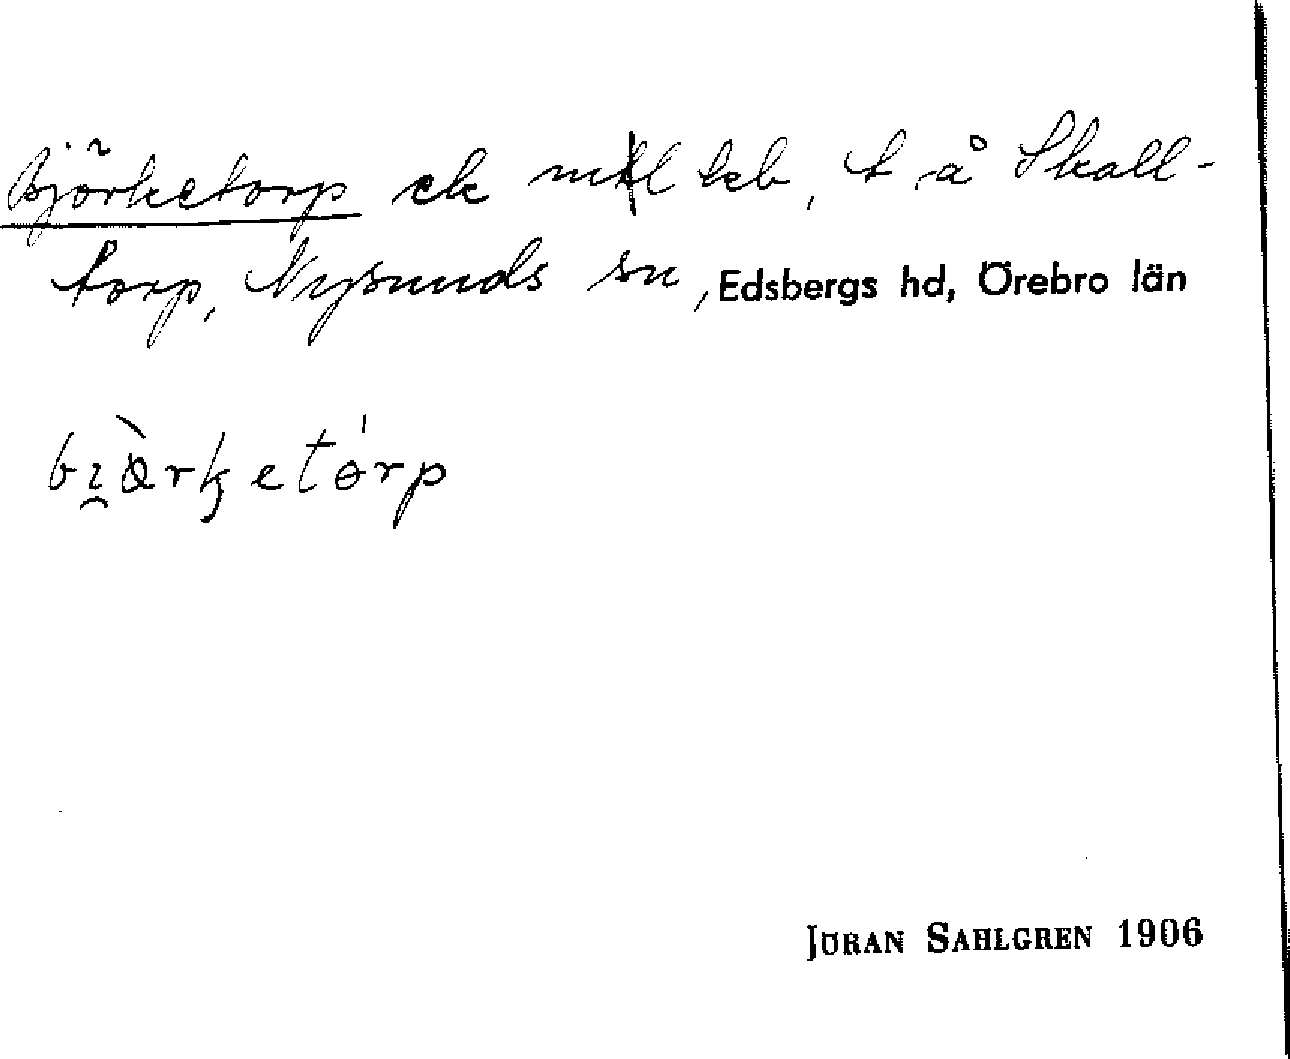 Björketorp ek mtl bcb, t. å Skall-
torp, Nysunds sn, Edsbergs hd, Örebro län
bi̯ὰrketórp
JÖRAN SAHLGREN 1906